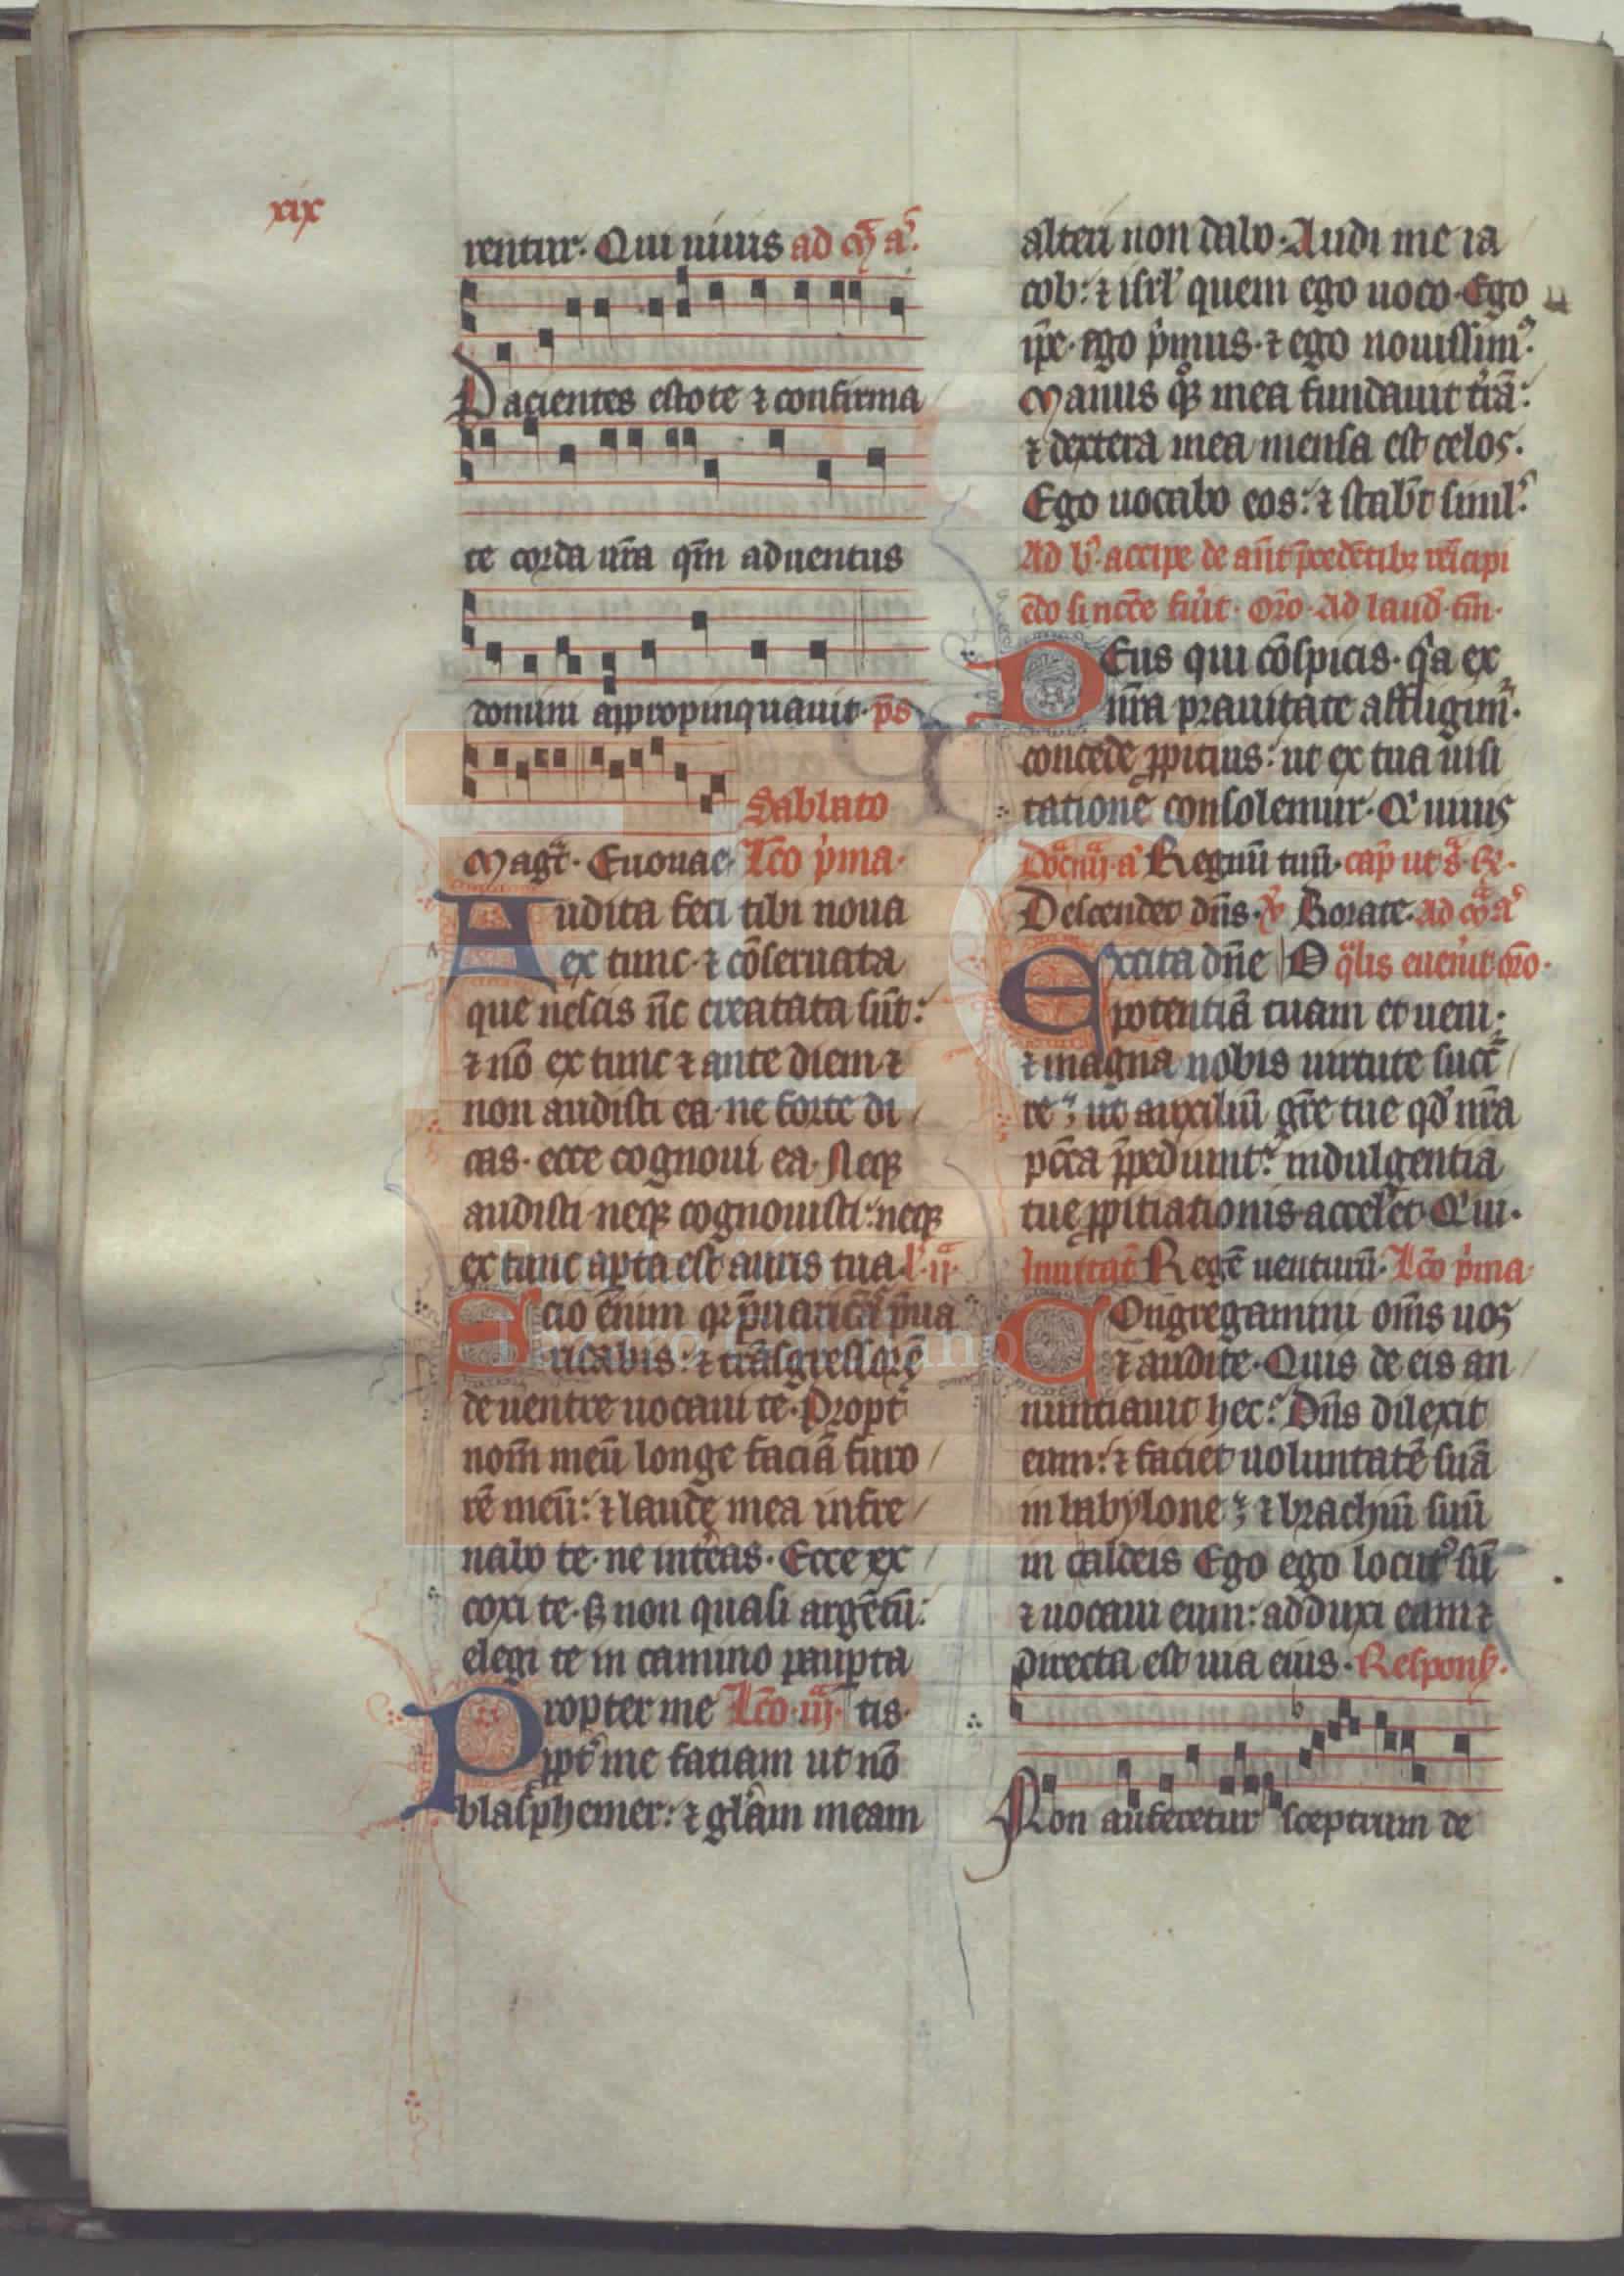 xix
rentur. Qui uiuis ad m̄ a.
Pacientes estote ⁊ confirma
te corda ur̄a qm̄ aduentus
domini appropinquauit. ps
Sabbato
Magt. Euouae. Lc̄o p'ma.
Audita feci tibi noua
ex tunc. ⁊ cōseruata
que nescis n̄c creatata sūt:
⁊ nō ex tunc ⁊ ante diem ⁊
non audisti ea. ne forte di
cas. ecce cognoui ea. Neqꝫ
audisti neqꝫ cognouisti: neqꝫ
ex tunc aꝑta est auris tua. l' ij.
Scio enim
ricabis: ⁊ trāsgressorē
de uentre uocaui te. Propt'
nom̄ meū longe faciā furo
rē meū: ⁊ laude mea infre
nabo te. ne int'eas. Ecce ex
coxi te. sꝫ non quasi argētū:
elegi te in camino pauꝑta
Propter me Lc̄o. iij. tis.
ꝓpt' me faciam ut nō
blasphemer: ⁊ gl'am meam
alteri non dabo. Audi me ia
cob: ⁊ isrl' quem ego uoco. Ego
ip̄e. ego p'mus. ⁊ ego nouissim'.
Manus qꝫ mea fundauit t'rā:
⁊ dextera mea mensa est celos.
Ego uocabo eos: ⁊ stab't simul.
Ad b'. accipe de ant' p̄cedētibꝫ
Deus qui cōspicis. q'a ex
nr̄a prauitate affligim'.
concede ꝓpitius: ut ex tua uisi
tatione consolemur. Q' uiuus
Regnū tuū. cap ut s.
Descendet dn̄s. ℣ Rorate. ad m̄ a
Excita dn̄e O q'lis euen'it or̄o.
potentiā tuam et ueni:
⁊ magna nobis uirtute succ'
re: ut auxiliū gr̄e tue qd' nr̄a
pcc̄a p̄pediunt: indulgentia
tue ꝓpitiationis accel'et. Qui.
Inuitat' Regē uenturū. Lc̄o p'ma.
Congregamini om̄s uos
⁊ audite. Quis de eis an
nuntiauit hec: Dn̄s dilexit
eum: ⁊ faciet uoluntatē suā
in babylone: ⁊ brachiū suū
in caldeis Ego ego locut' sū
⁊ uocaui eum: adduxi eum ⁊
directa est uia eius. Respons.
Non auferetur sceptrum de